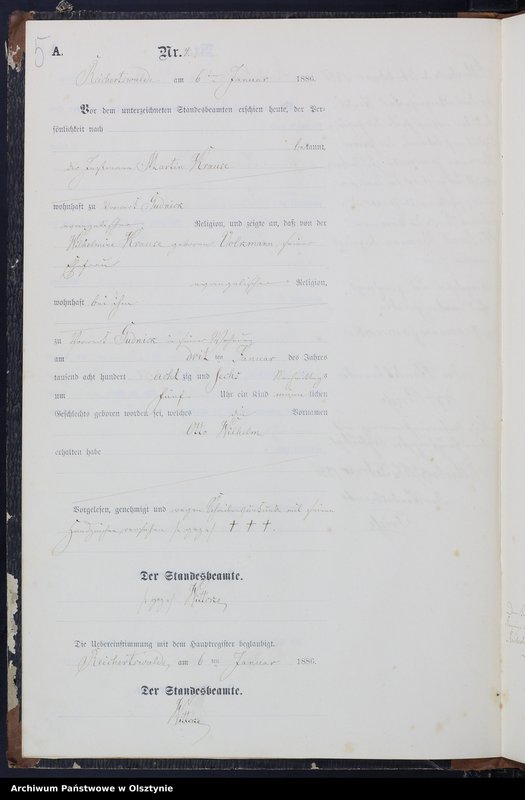 5
A.
Nr.
Reichertswalde am 6ten Januar 1886.
Vor dem unterzeichneten Standesbeamten erschien heute, der Per-
sönlichkeit nach
bekannt,
der Instmann Martin Krause
wohnhaft zu Vorwerk Gudnick
evangelischer Religion, und zeigte an, daß von der
Wilhelmine Krause geborene Volkmann, seiner
Ehefrau
evangelischer Religion,
wohnhaft bei ihm
zu Vorwerk Gudnick in seiner Wohnung
am dritten Januar des Jahres
tausend acht hundert achtzig und sechs Vormittags
um fünf Uhr ein Kind männlichen
Geschlechts geboren worden sei, welches die Vornamen
Otto Wilhelm
erhalten habe
Vorgelesen, genehmigt und wegen Schreibunkunde mit seinem
Handzeichen versehen gez. † † †.
Der Standesbeamte.
Die Uebereinstimmung mit dem Hauptregister beglaubigt.
Reichertswalde, am 6ten Januar 1886.
Der Standesbeamte.
Archiwum Państwowe w Olsztynie